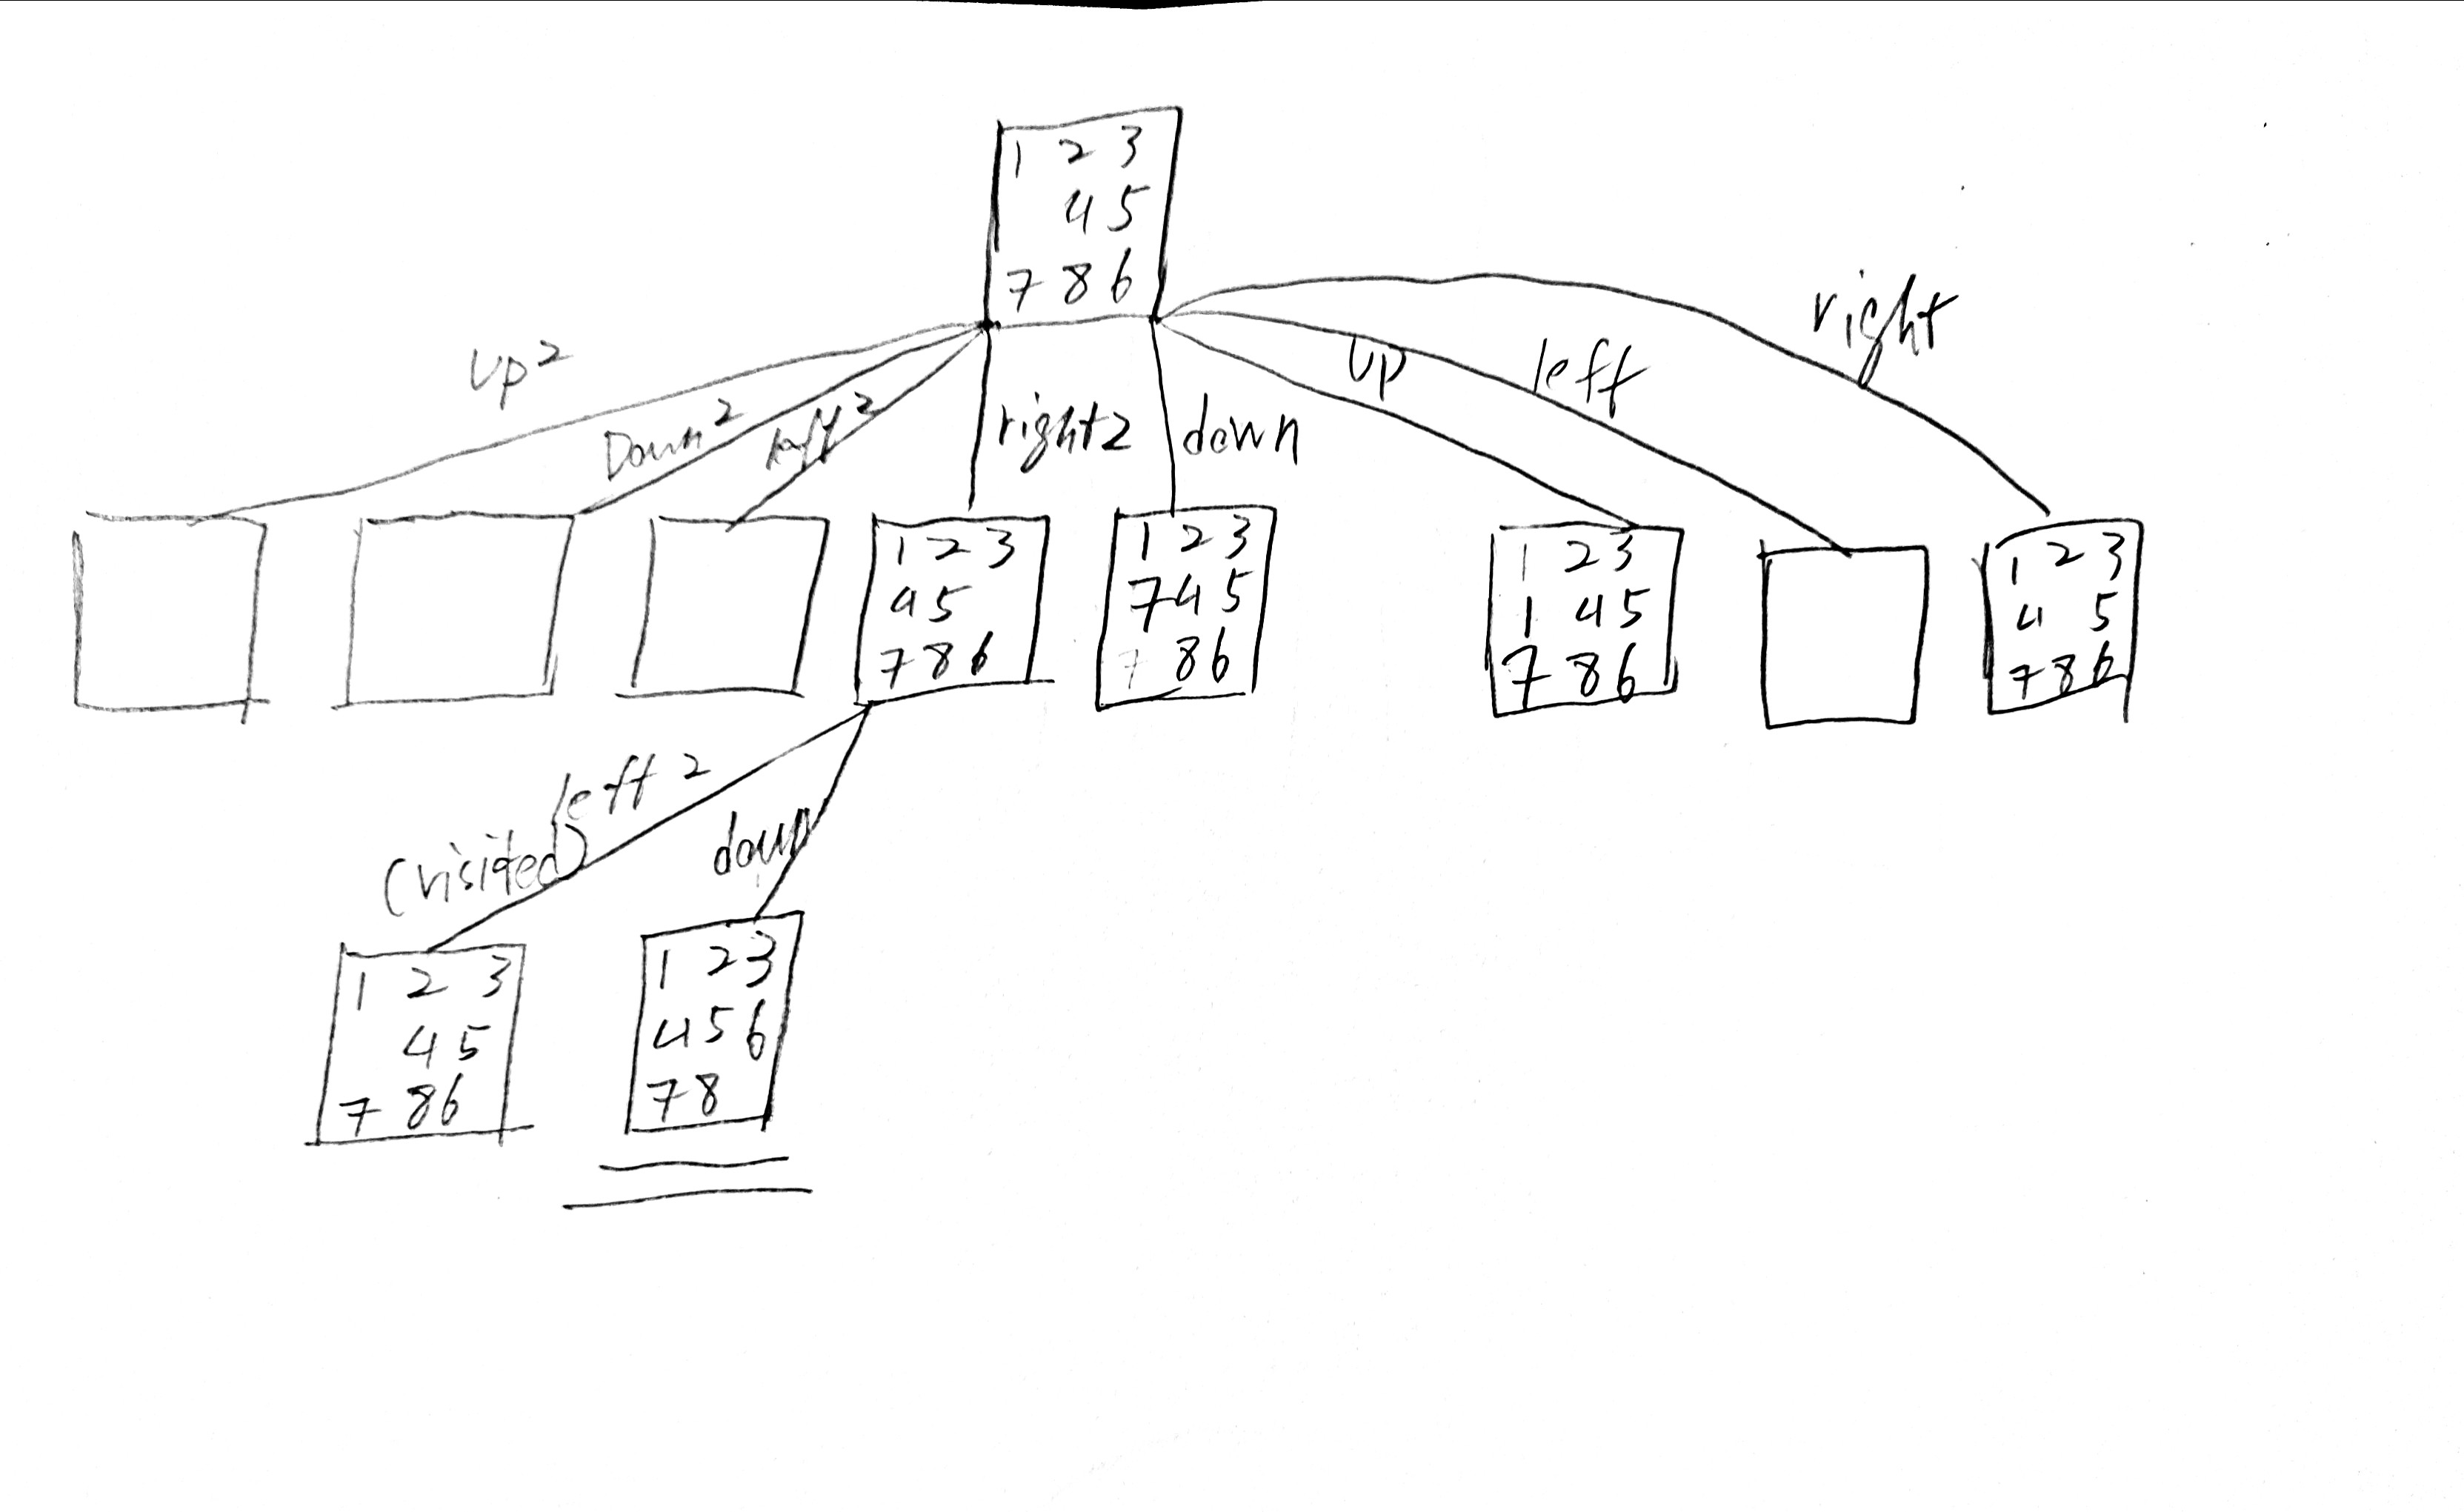 1 2 3
4 5
7 8 6
up2
Down2
left2
right2
down
up
left
right
1 2 3
4 5
7 8 6
1 2 3
7 4 5
7 8 6
1 2 3
1 4 5
7 8 6
1 2 3
4 5
7 8 6
left2
(visited)
down
1 2 3
4 5
7 8 6
1 2 3
4 5 6
7 8